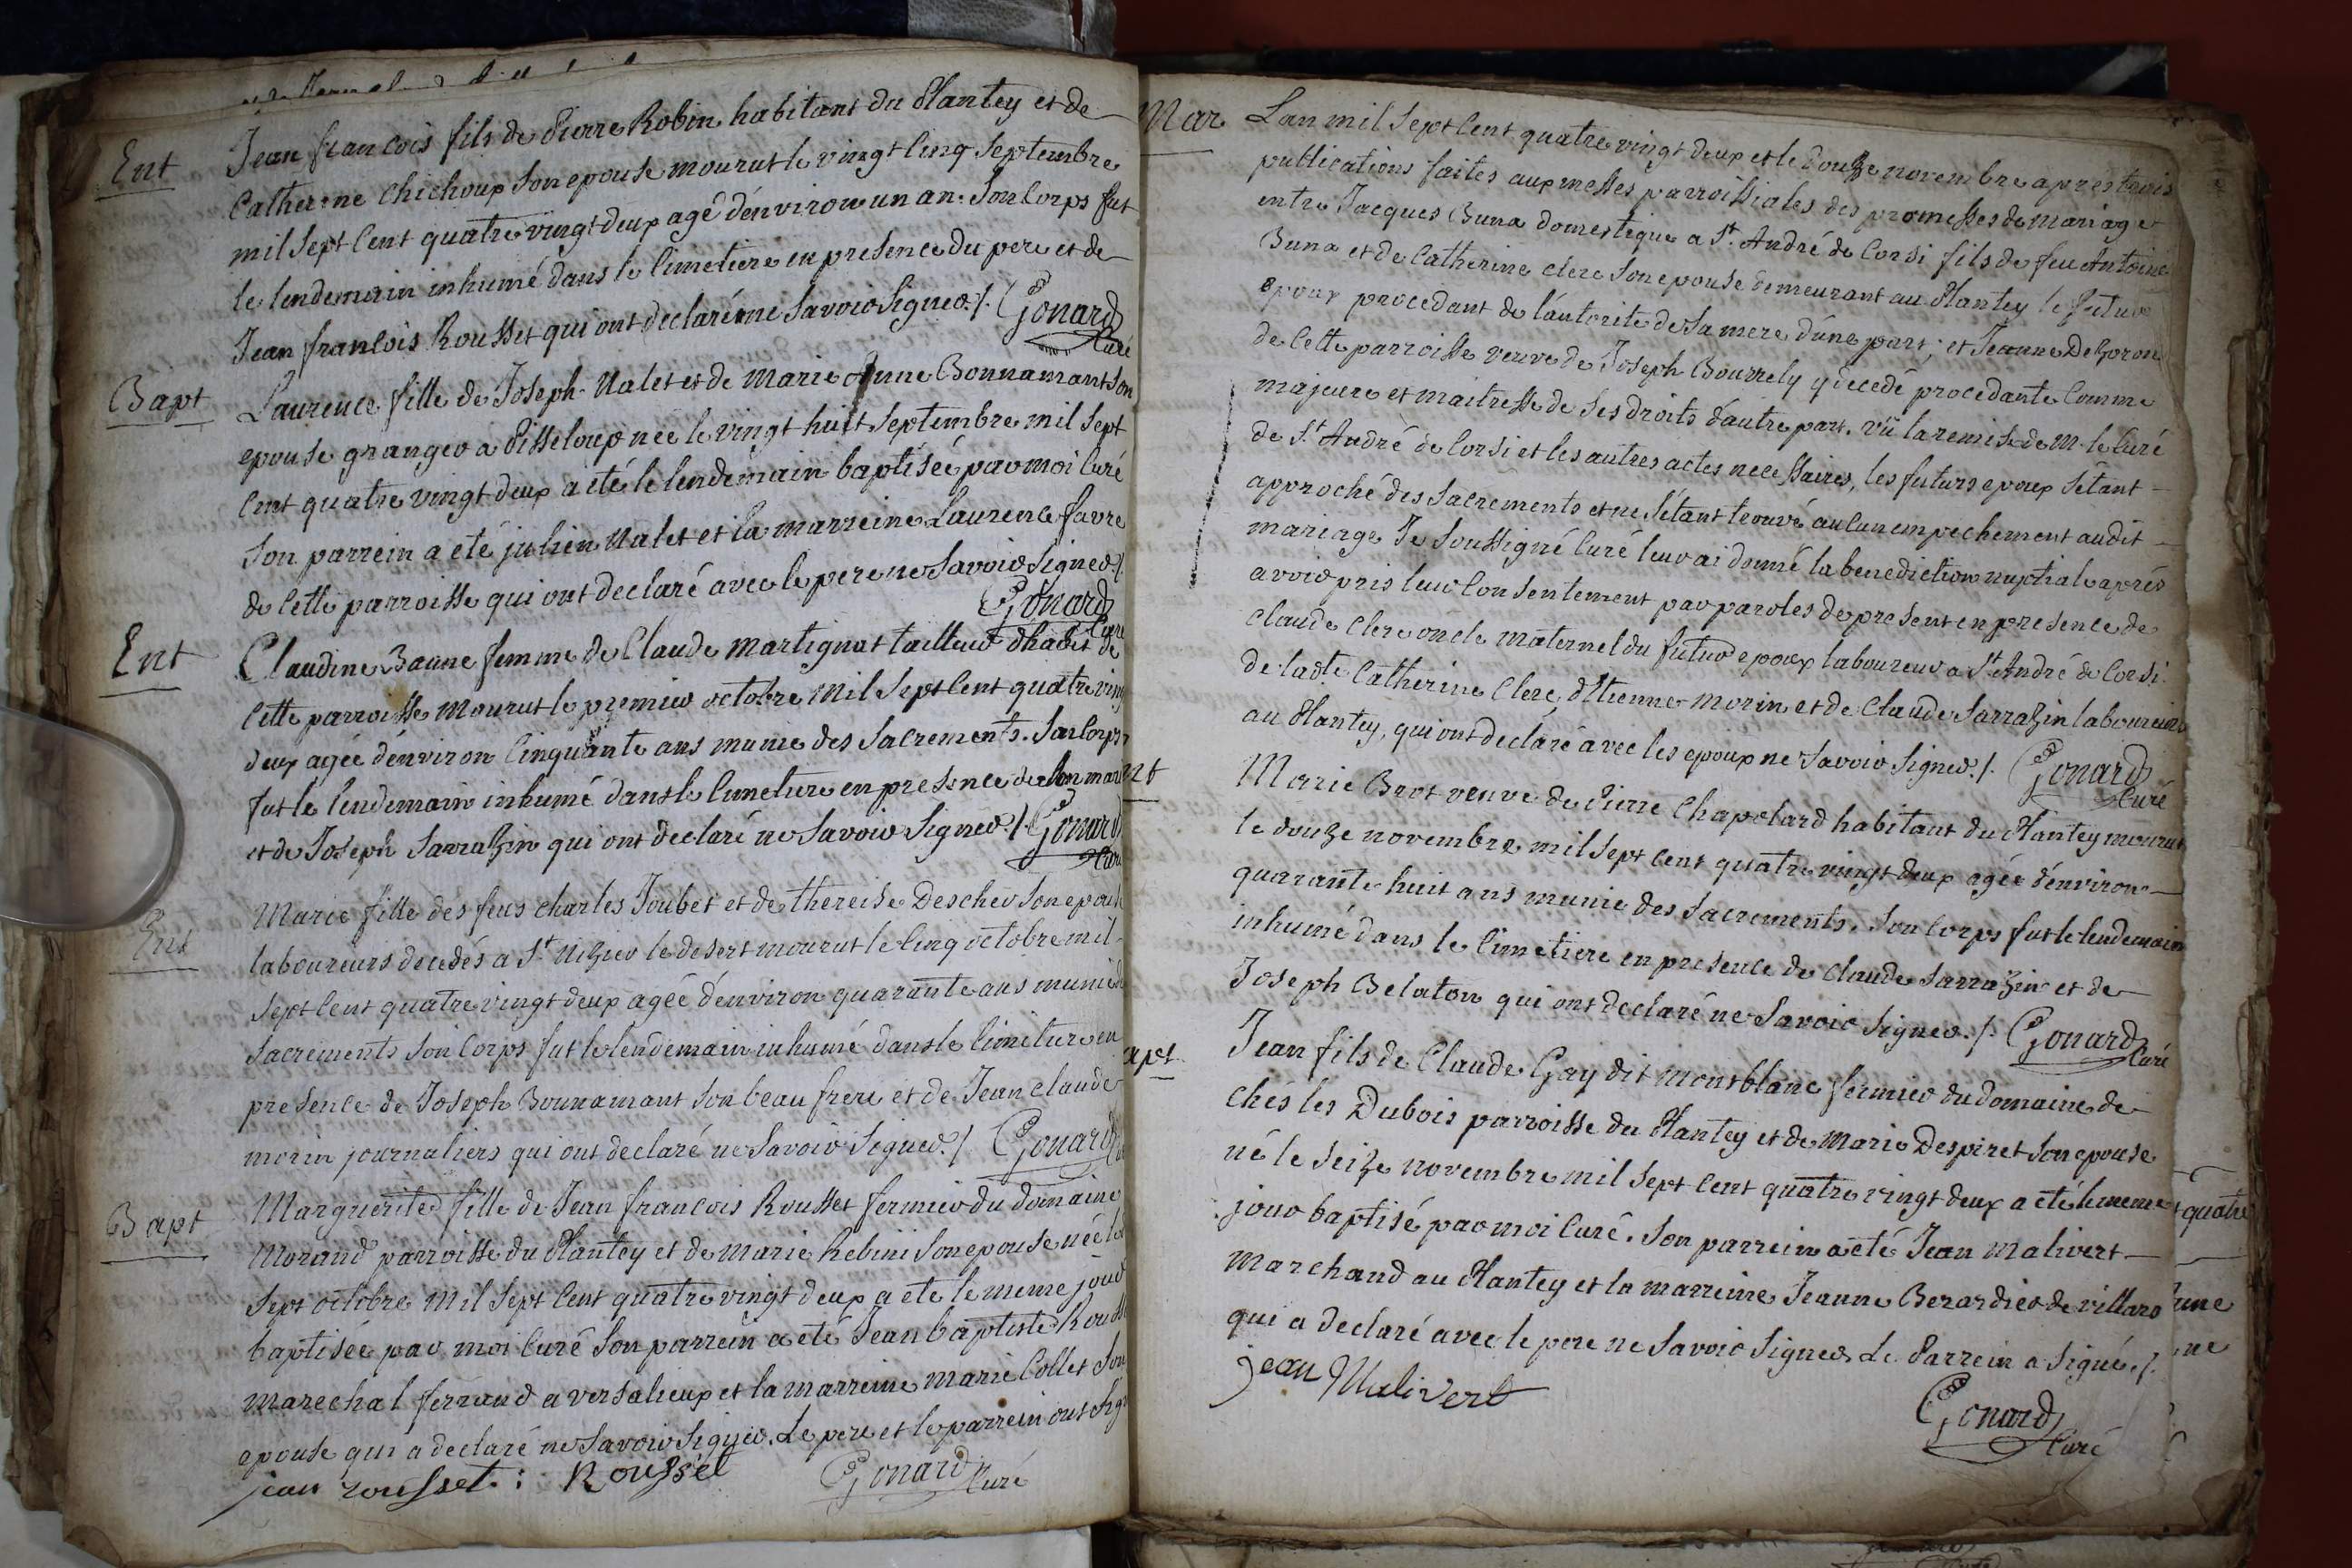 Ent
Jean francois fils de Pierre Robin habitant du Plantey et de
Catherine Chichoux son epouse mourut le vingt cinq septembre
mil sept cent quatre vingt deux agé d'environ un an. Son corps fut
le lendemain inhumé dans le cimetiere en presence du pere et de
Jean francois Rousset qui ont declaré ne savoir signer./. Gonard
Curé
Bapt
Laurence fille de Joseph Nalet et de Marie Anne Bonnamant son
epouse granger a Pisseloup née le vingt huit septembre mil sept
cent quatre vingt deux a été le lendemain baptisée par moi curé
son parrein a eté julien Nalet et la marreine Laurence favre
de cette parroisse qui ont declaré avec le pere ne savoir signer./.
Gonard
Curé
Ent
Claudine Banne femme de Claude Martignat tailleur d'habit de
cette parroisse mourut le premier octobre mil sept cent quatre ving
deux agée d'environ cinquante ans munie des sacrements. Son corps
fut le lendemain inhumé dans le cimetiere en presence de son mari
et de Joseph Sarrazin qui ont declaré ne savoir signer./. Gonard
Curé
Ent
Marie fille des feus Charles Joubet et de thereise Descher son epouse
laboureurs decedés a St. Nizier le desert mourut le cinq octobre mil
sept cent quatre vingt deux agée d'environ quarante ans munie de
sacrements son corps fut le lendemain inhumé dans le cimetiere en
presence de Joseph Bonnamant son beau frere et de Jean Claude
morin journaliers qui ont declaré ne savoir signer./. Gonard
Bapt
Marguerite fille de Jean francois Rousset fermier du domaine
Morand parroisse du Plantey et de Marie Rebini son epouse née le
sept octobre mil sept cent quatre vingt deux a eté le meme jour
baptisée par moi curé son parrein a eté Jean baptiste Rousse
marechal ferrand a versalieux et la marreine marie Collet son
epouse qui a declaré ne savoir signer. Le pere et le parrein ont sig
jean rousset : Rousset Gonard Curé
Mar
Lan mil sept cent quatre vingt deux et le douze novembre apres trois
publications faites aux messes parroissiales des promesses de mariage
entre Jacques Buna domestique a St. André de Corsi fils de feu Antoine
Buna et de Catherine Clerc son epouse demeurant au Plantey le futur
epoux procedant de l'autorité de sa mere d'une part; et Jeanne Dezoron
de cette parroisse veuve de Joseph Bourrely y decedé procedante comme
majeure et maitresse de ses droits d'autre part. vû la remise de M. le Curé
de St. André de Corsi et les autres actes necessaires, les futurs epoux s'étant
approché des sacrements et ne s'étant trouvé aucun empechement audit
mariage Je soussigné Curé leur ai donné la benediction nuptiale après
avoir pris leur consentement par paroles de present en presence de
Claude Clerc oncle maternel du futur epoux laboureur a St. André de Corsi
de ladte Catherine Clerc, d'Etienne Morin et de Claude Sarrazin laboureurs
au Plantey, qui ont declaré avec les epoux ne savoir signer./. Gonard
Curé
nt
Marie Brot veuve de Pierre Chapelard habitant du Plantey mourut
le douze novembre mil sept cent quatre vingt deux agée d'environ
quarante huit ans munie des sacrements. Son corps fut le lendemain
inhumé dans le cimetiere en presence de Claude Sarrazin et de
Joseph Belaton qui ont declaré ne savoir signer./. Gonard
Curé
apt
Jean fils de Claude Gay dit montblanc fermier du domaine de
chés les Dubois parroisse du Plantey et de Marie Despiret son epouse
né le seize novembre mil sept cent quatre vingt deux a eté le meme
jour baptisé par moi curé. Son parrein a eté Jean Malivert
marchand au Plantey et la marreine Jeanne Berardier de villars
qui a declaré avec le pere ne savoir signer Le Parrein a signé./.
jean Malivert
Gonard
Curé
quatre
une
ne